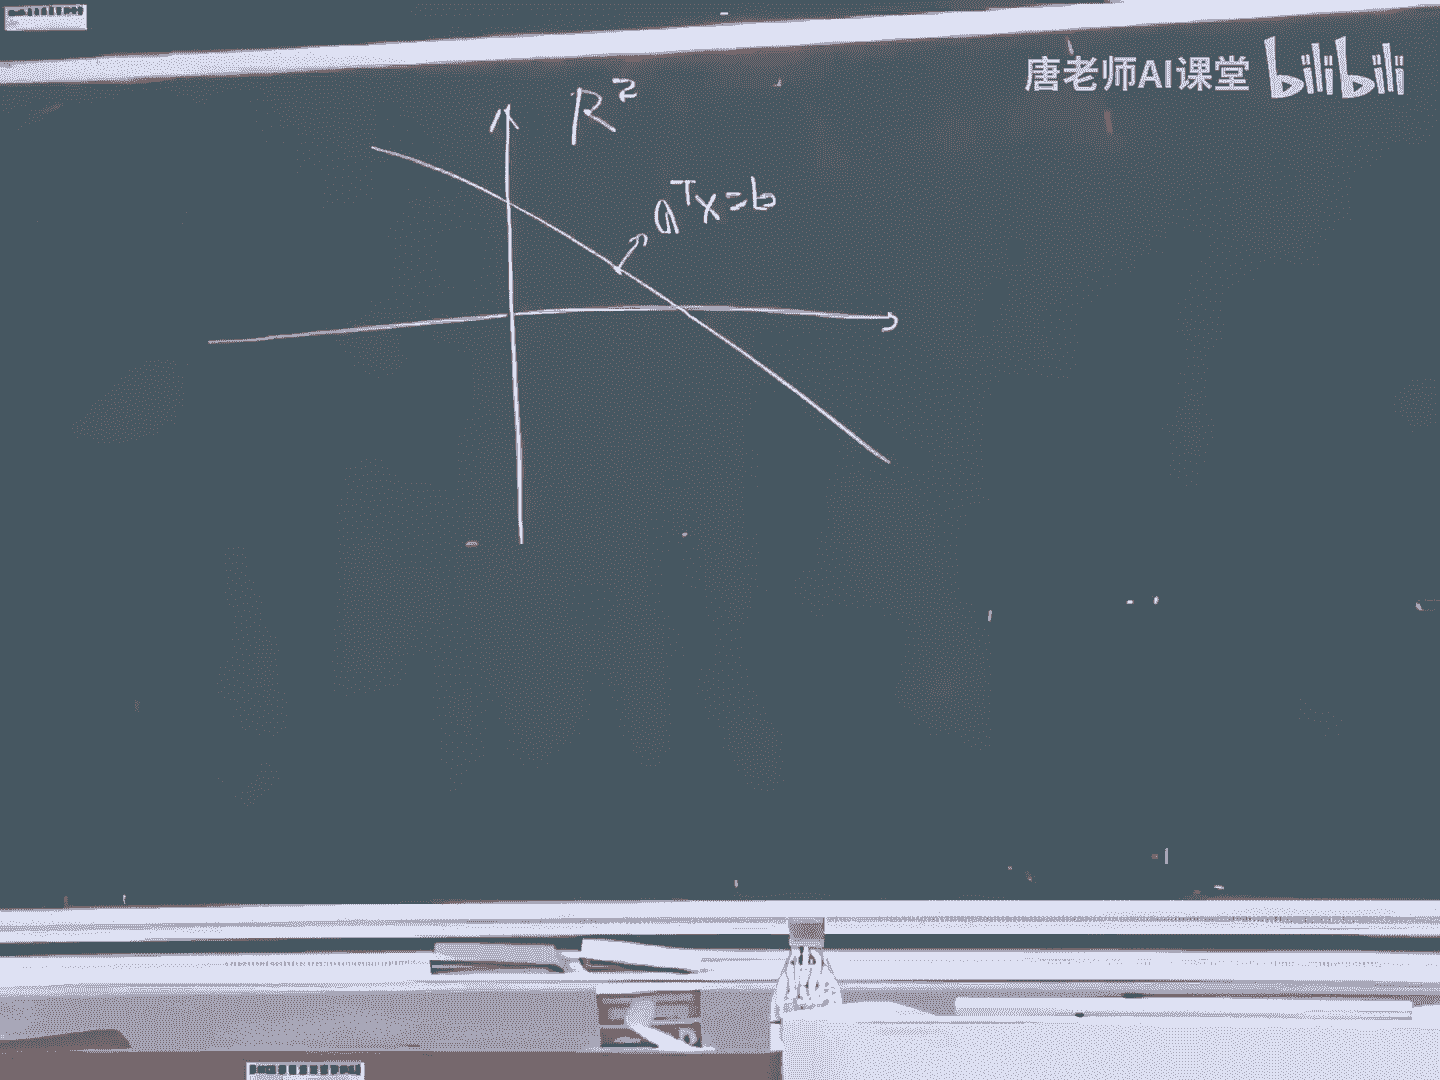 唐老师AI课堂 bilibili
R²
aᵀx=b